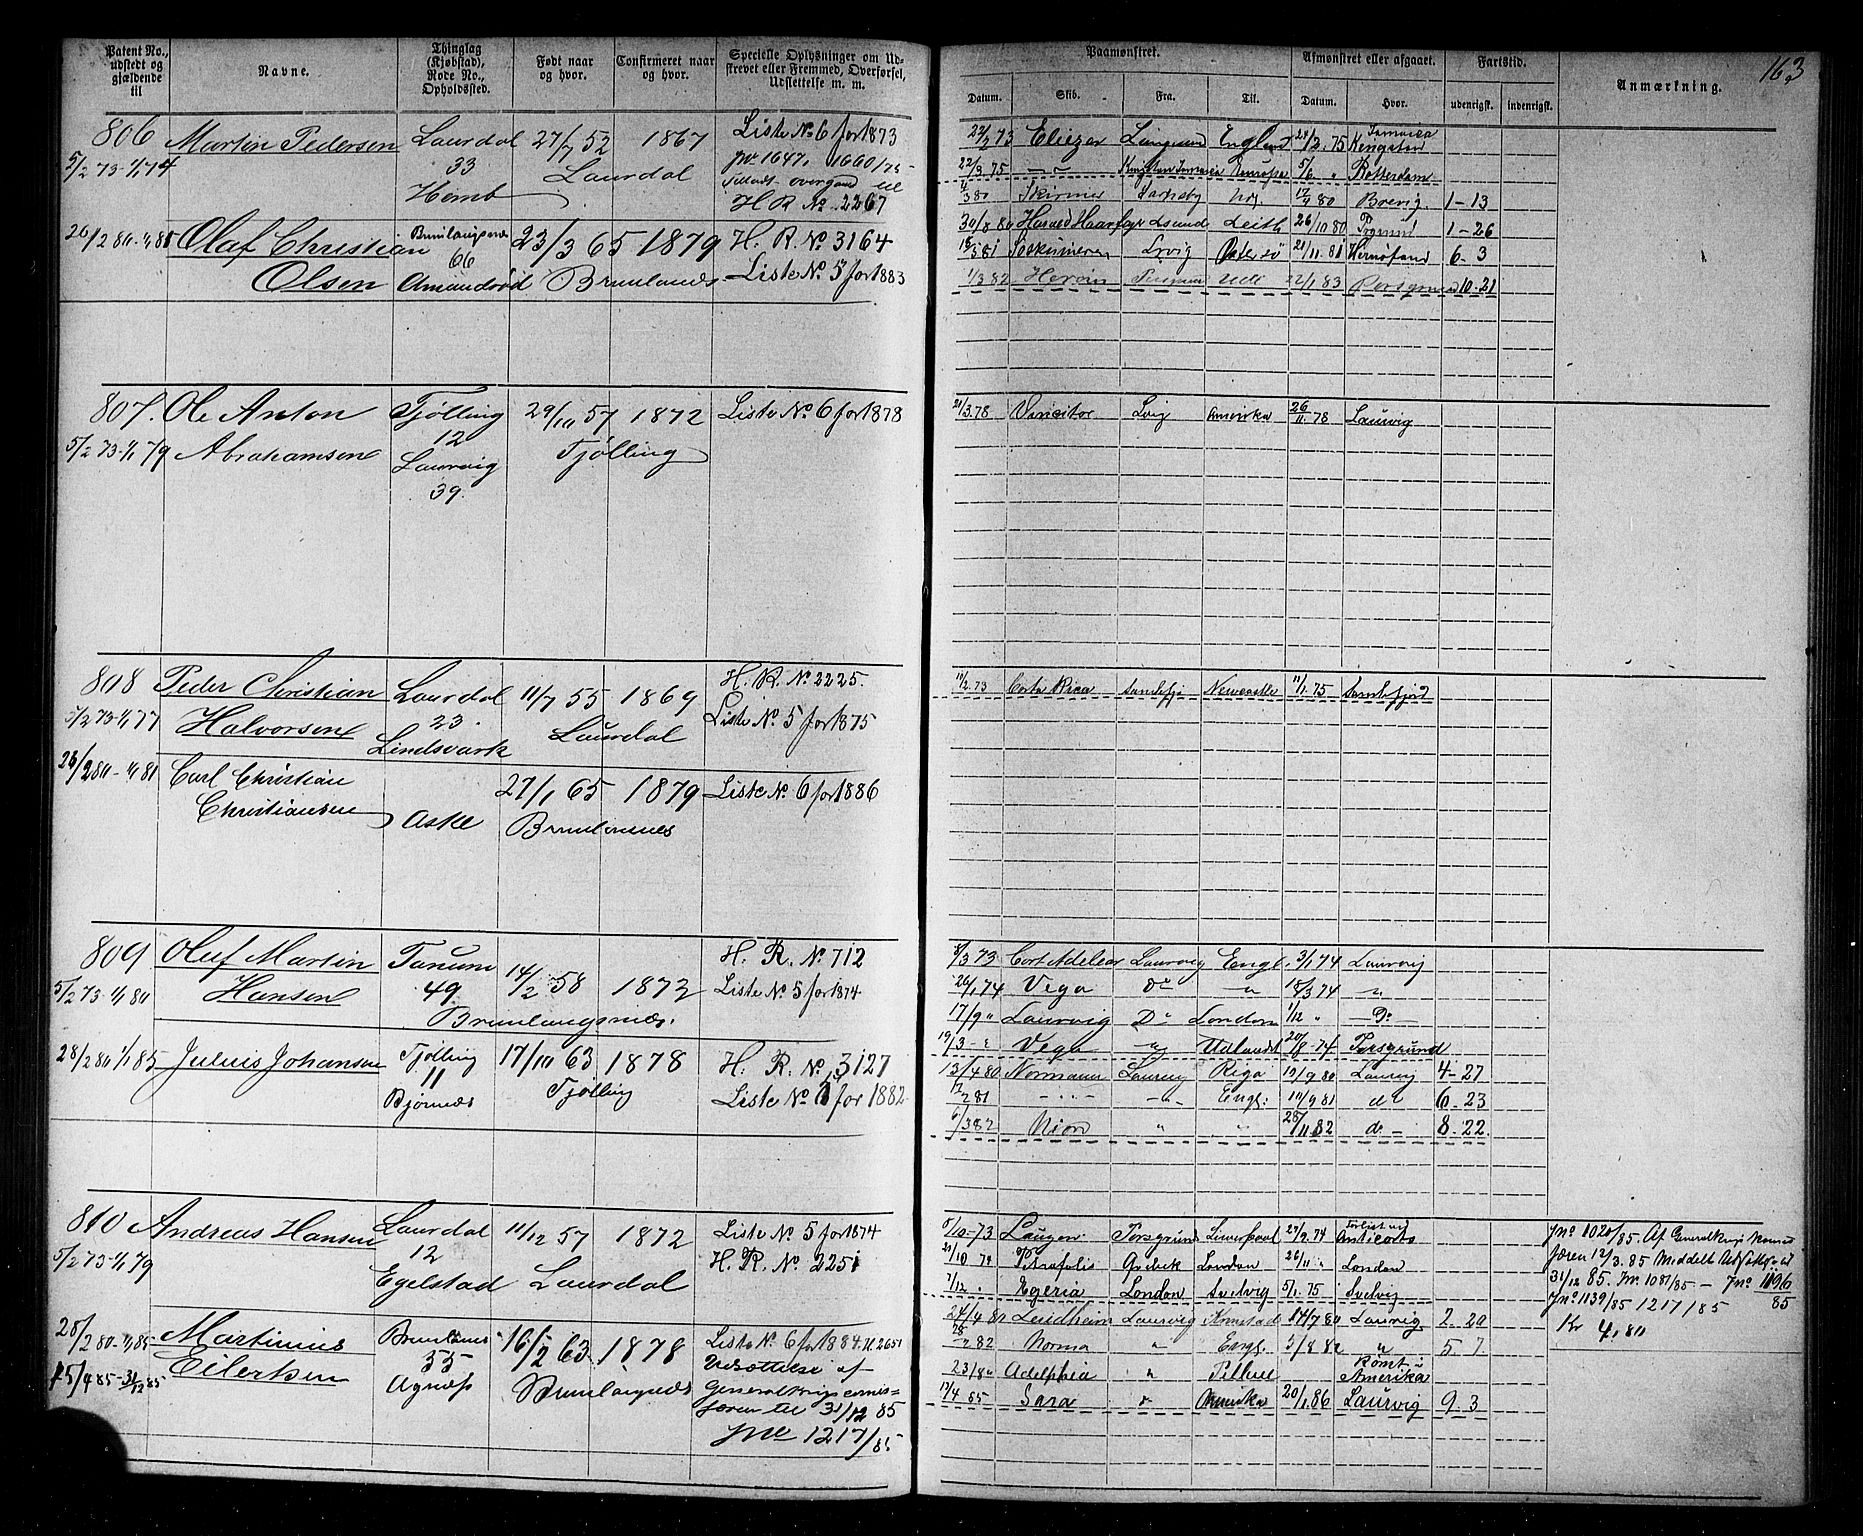 Patent No., udstedt og gjældende til
Navne.
Thinglag (Kjøbstad), Rode No., Opholdssted.
Født naar og hvor.
Confirmeret naar og hvor.
Specielle Oplysninger om Udskrevet eller Fremmed, Overførsel, Udslettelse m. m.
Paamønstret.
Afmønstret eller afgaaet.
Fartstid.
Anmærkning.
163
Datum. Skib. Fra. Til. Datum. Hvor. udenrigsk. indenrigsk.
806 Martin Pedersen Laurdal 27/7 52 1867 Liste No 6 for 1873
5/2 73-1/1 74 33 Laurdal
H R No 2267
26/2 80-1/1 85 Olaf Christian 23/3 65 1879 H. R. No 3164
66
Olsen Amundsröd Brunlanæs Liste No 5 for 1883
22/2 73 Eliezer Langesund England 75 Kingston
22/3 75 Europa 5/6 " Rotterdam
80 Skirner 80 Brevig 1-13
30/8 80 Leith 26/10 80 1-26
Lrvig Østersö 21/11 81 Hernösand 6-3
1/3 82 22/1 83 Porsgrund 10-21
807. Ole Anton Tjølling 29/10 57 1872 Liste No 6 for 1878
5/2 73-1/1 79 Abrahamsen 12 Tjølling
Laurvig
39.
21/3.78 Lvig Amerika 26/11.78 Laurvig
808 Peder Christian Laurdal 11/7 55 1869 H. R. No 2225.
5/2 73-1/1 77 Halvorsen 23. Laurdal Liste No 5 for 1875
Lindsvark
26/2 80-1/1 81 Carl Christian 27/1 65 1879 Liste No 6 for 1886
Christiansen Aske Brunlanæs
11/2.73 Costa Rica Sandefj Newcastle 11/1.75 Sandefjord
809 Oluf Martin Tanum 14/2 58 1872 H. R. No 712
5/2 73-1/1 80 Hansen 49 Liste No 5 for 1874
Brunlangsnæs.
28/2 80 1/1 85 Julius Johansen Tjølling 17/10 63 1878 H. R. No 3127
11 Tjølling
Bjørnnæs Liste No for 1882
3 73 Cort Adelaer Laurvig Engl. 3/1 74 Laurvig
1 74 Vega Do " 3 74 "
17/9 " Laurvig Do London 1/12 " Do
19/3 - " Vega " Udlandet 20/8-74 Porsgrund
13/4 80 Normann Laurvig Riga 19/9 80 Laurvig 4-27
81 - " - - " - Engl: 10/9 81 do 6-23
6/3 82 Nion " " 28/11 82 do - 8-22.
810 Andreas Hansen Laurdal 11/12 57 1872 Liste No 5 for 1874
5/2 73-1/1 79 12 H. R. No 2251
Egelstad Laurdal
28/2 80-1/1 85 Martinius Brunlanæs 16/2 63. 1878 Liste No 6 for 1884.
15/4 85-31/12 85 Eilersen Udsættelse af
Agnæs Brunlangnæs Generalkrigscomis=
særen til 31/12 85
Jno 1217/85
10-73 Laugen Porsgrund Liverpool 2.74 Forlist ved Anticosti
21/10 74 Petropolis Qvebek London 26/11 " London
7/12 Egeria London Svelvig 5/1.75 Svelvig
24/4 80 Lindheim Laurvig Kronstad 14/7 80 Laurvig 2-20
82 Norma " Engl. 3/8 82 " 5 7
23/8 Adelphia " Rømt i Amerika
17/4 85 Sara Amerika 20/1.86 Laurvig 9 3
Jno 1020/85. Af Generalkrigskommis
særen 12/3.85 Meddelt Udsættelse til
31/12 85. Jno 1081/85 - Jno 1196/85
Jno 1139/85 1217/85
Kr 4,80